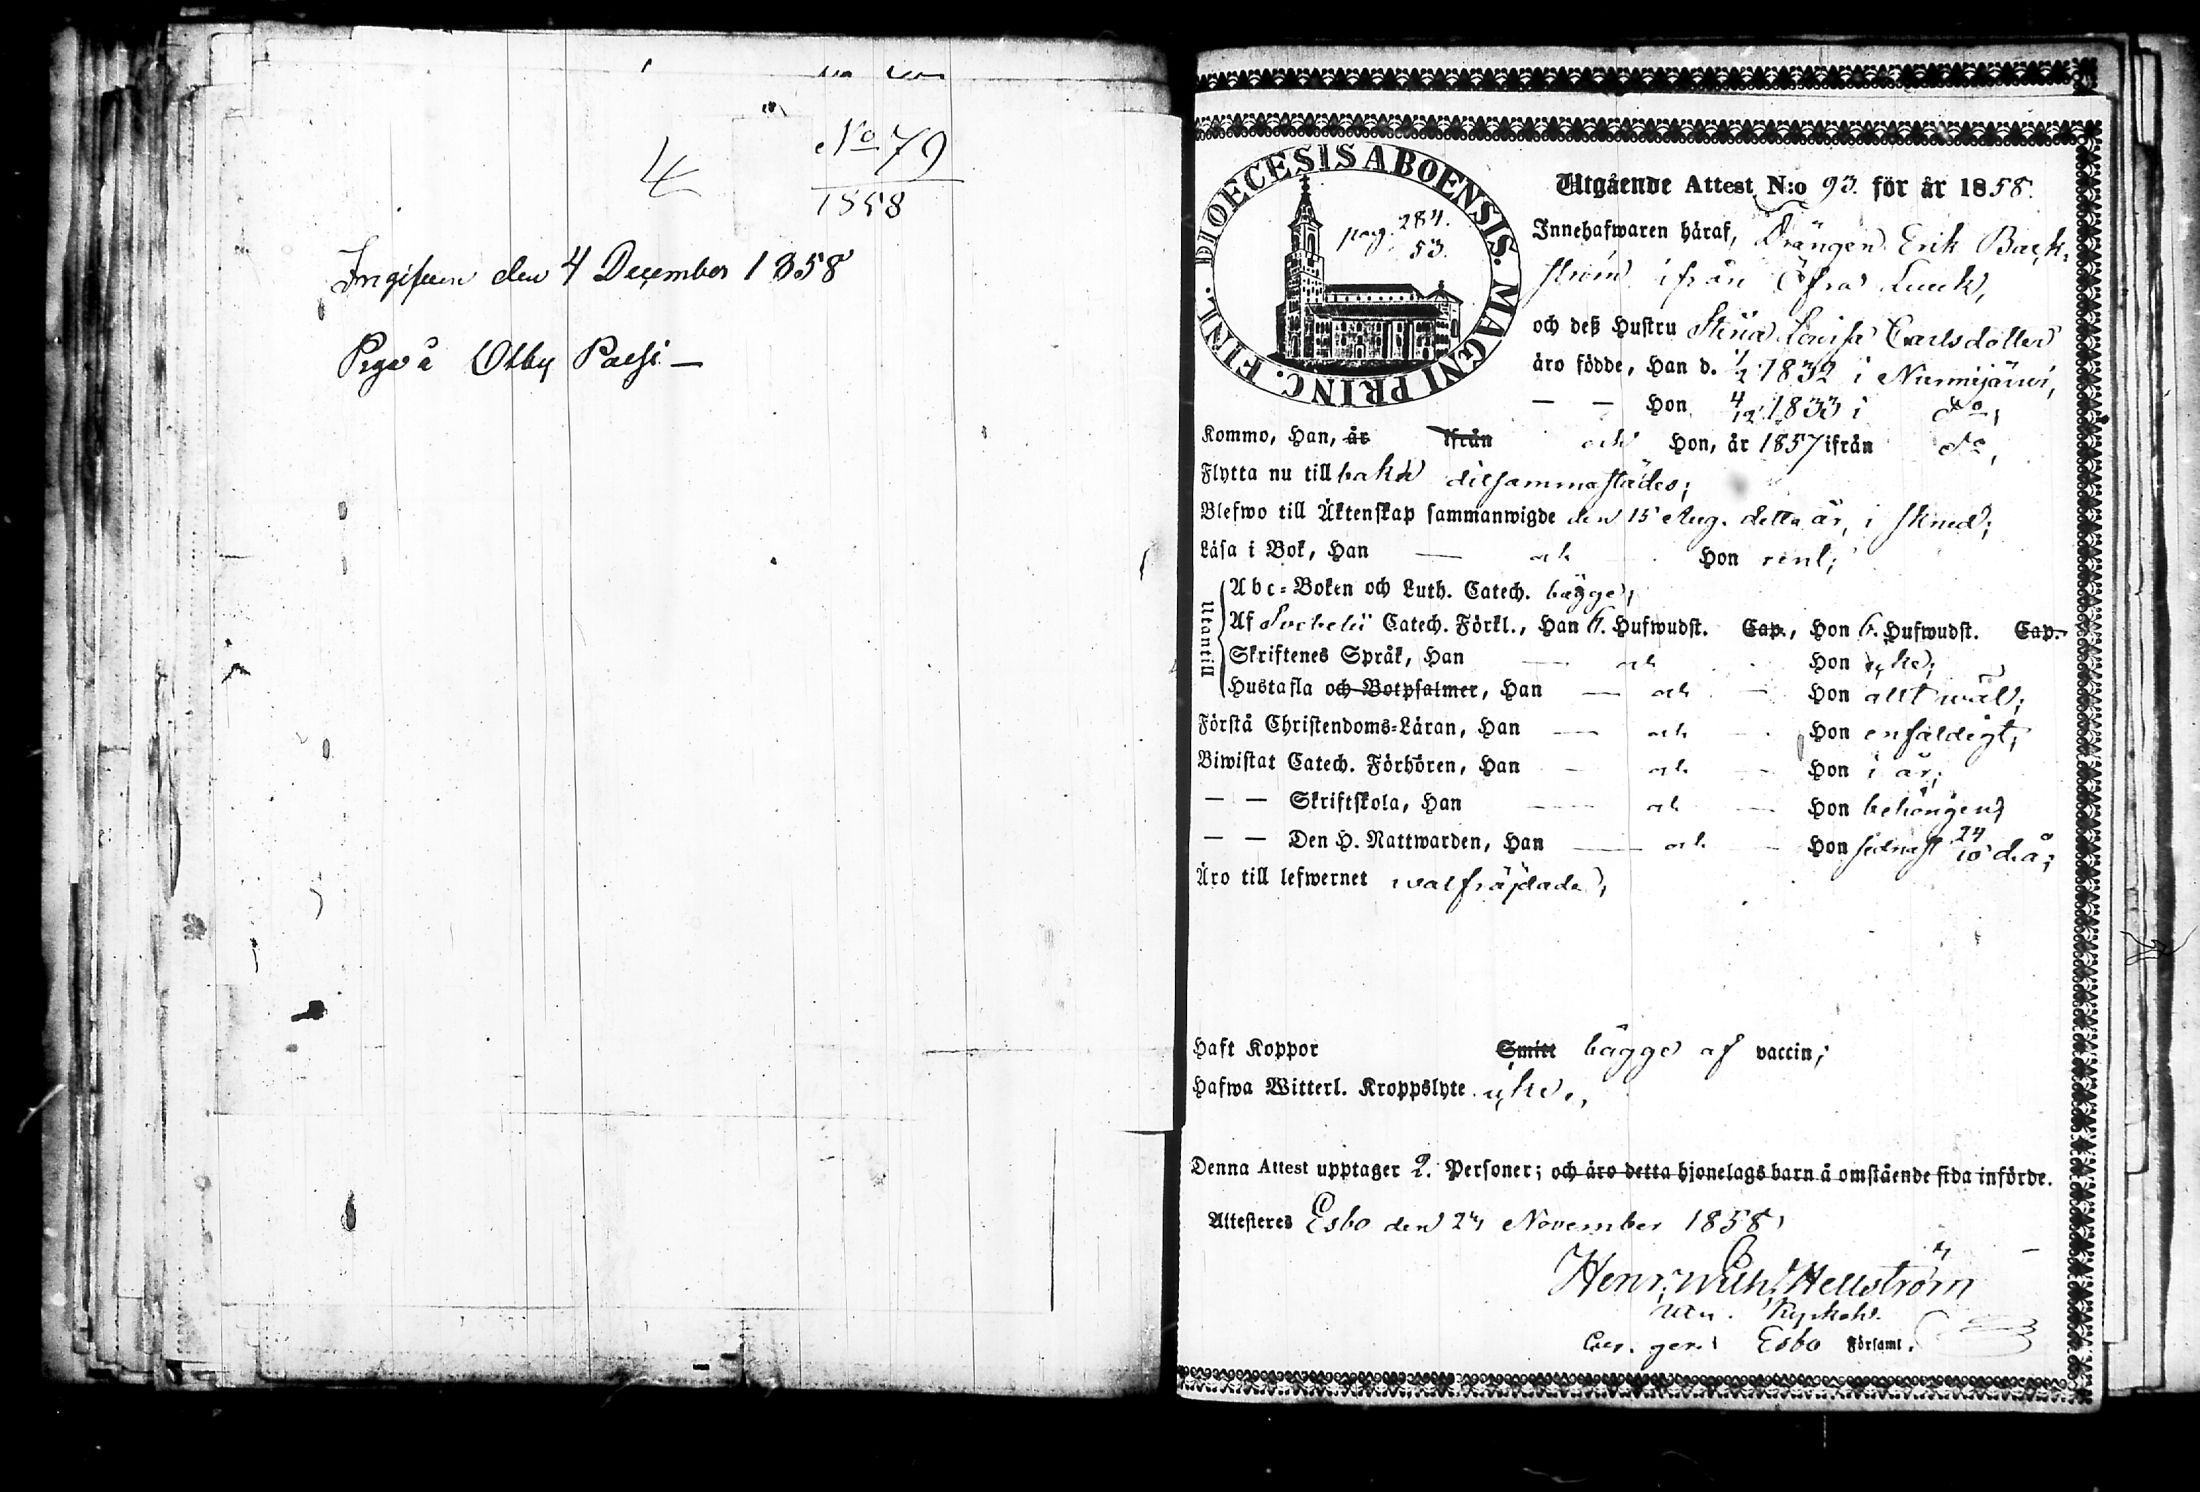 No 79
4
1858
Ingifven den 4 December 1858
Otby Palsi —
DIOECESIS ABOENSIS. MAGNI PRINC. FINL.
pag. 284.
53.
Utgående Attest N:o 93. för år 1858.
Innehafwaren häraf, Drängen Erik Back-
ström ifrån Öfra Luuk,
och deß Hustru Stina Lovisa Carlsdotter
äro födde, Han d. 1/2 1832 i Nurmijärvi,
— — Hon 4/12 1833 i do,
Kommo, Han, år ifrån och Hon, år 1857 ifrån do,
Flytta nu tillbaka ditsammastädes;
Blefwo till Äktenskap sammanwigde den 15 Aug. detta år, i
Läsa i Bok, Han — och Hon rent;
Utantill
Abc-Boken och Luth. Catech. bägge,
Af Svebelii Catech. Förkl., Han 6. Hufwudst. Cap., Hon 6. Hufwudst. Cap.
Skriftenes Språk, Han — och — Hon icke;
Hustafla och Botpsalmer, Han — och — Hon allt wäl;
Förstå Christendoms-Läran, Han — och — Hon enfaldigt,
Biwistat Catech. Förhören, Han — och — Hon i år;
— — Skriftskola, Han — och — Hon behörigen;
— — Den H. Nattwarden, Han — och — Hon sednast 24/10 d.å;
Äro till lefwernet wälfräjdade,
Haft Koppor Smitt bägge af vaccin;
Hafwa Witterl. Kroppslyte icke.,
Denna Attest upptager 2. Personer; och äro detta hjonelags barn å omstående sida införde.
Attesteres Esbo den 24 November 1858,
Henr. Wilh. Hellström
Kyrkoh.
Esbo Församl.